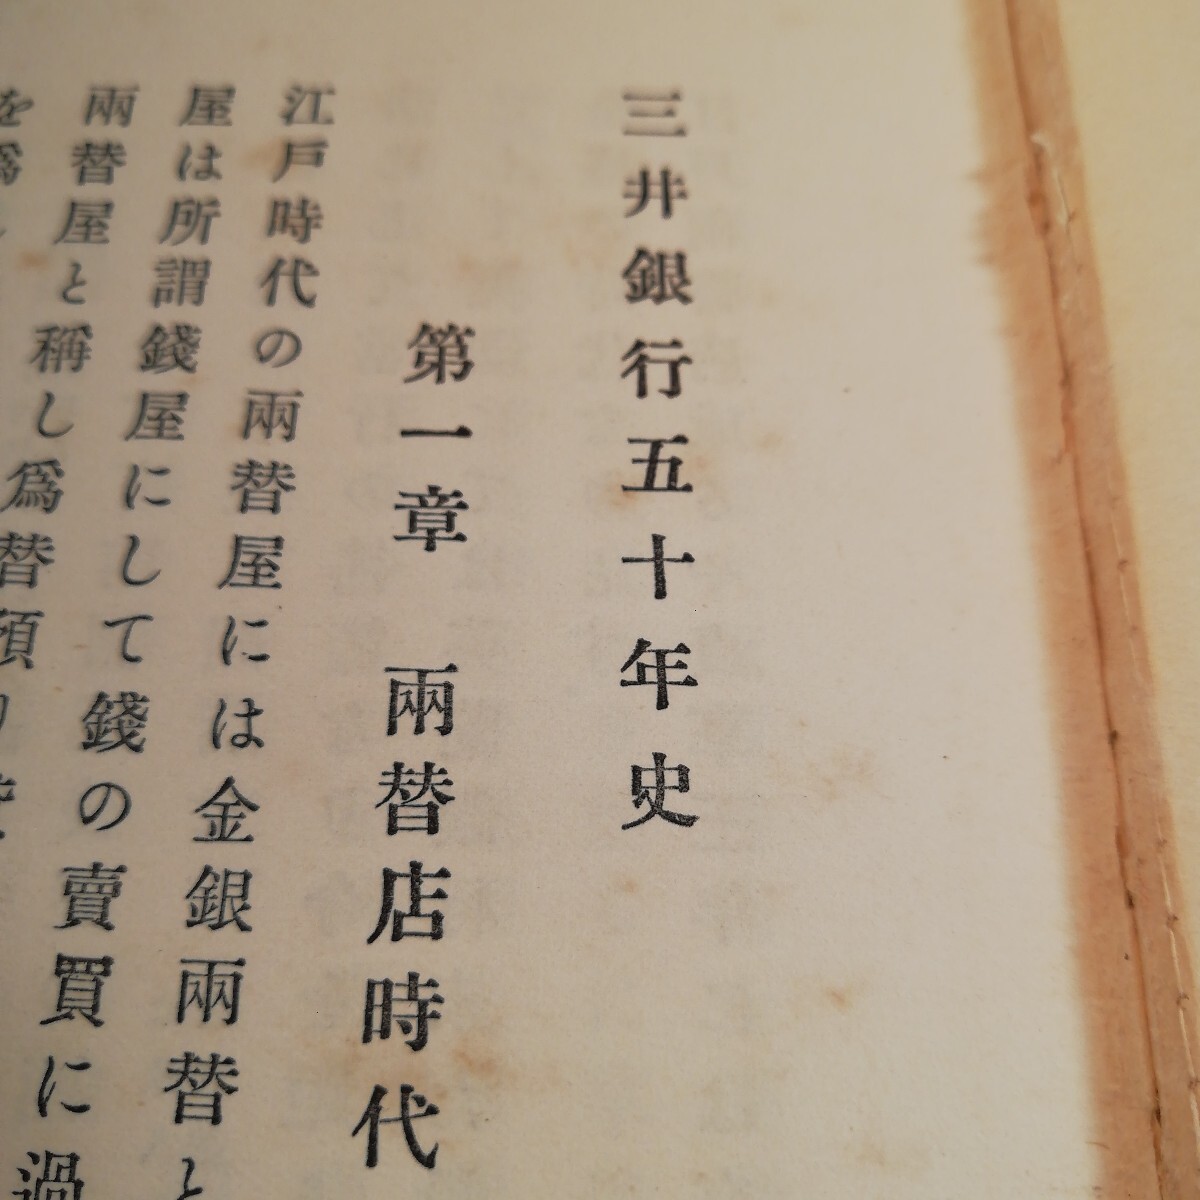 三井銀行五十年史
第一章 兩替店時代
江戸時代の兩替屋には金銀兩替と
屋は所謂錢屋にして錢の賣買に過
兩替屋と稱し爲替預り
を爲し